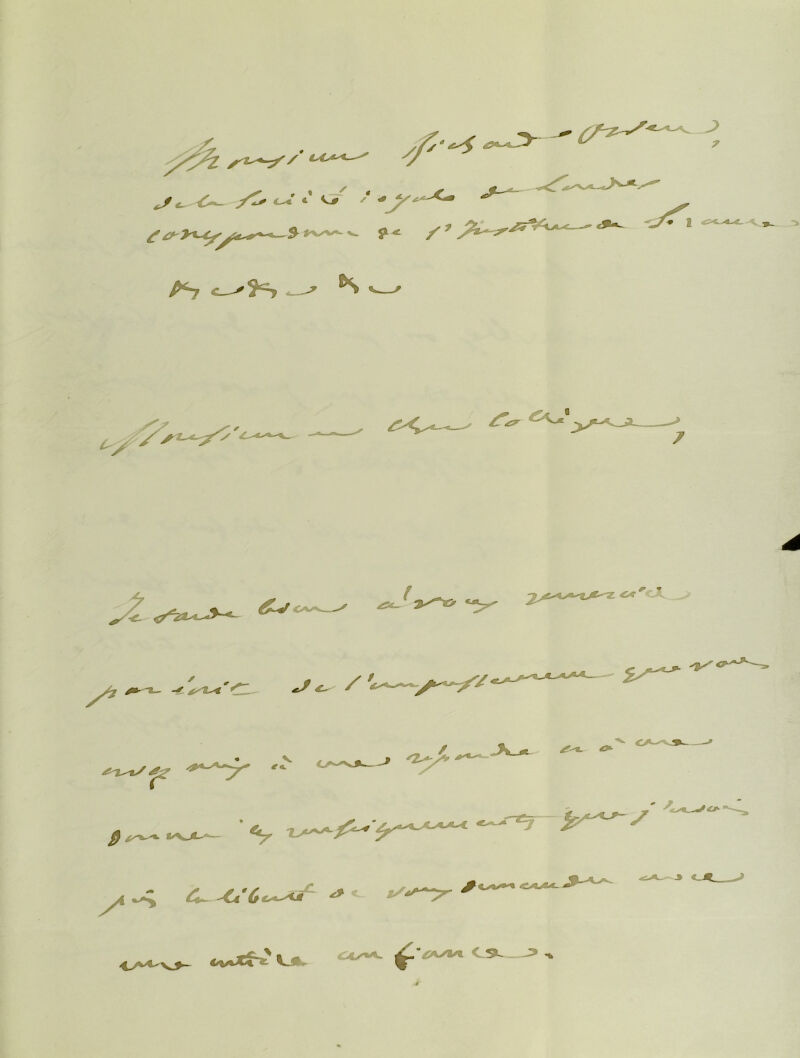 Monsieur Richard Owen,
de la Société royale de Londres
correspondant de l'Institut de France
&c &c &c
Monsieur et cher Collègue,
Je tarde bien à vous remercier
par écrit de l'empressement que vous
avez mis à me répondre et à me
donner les renseignements que j'avais
pris la liberté de vous demander avec
une entière confiance.